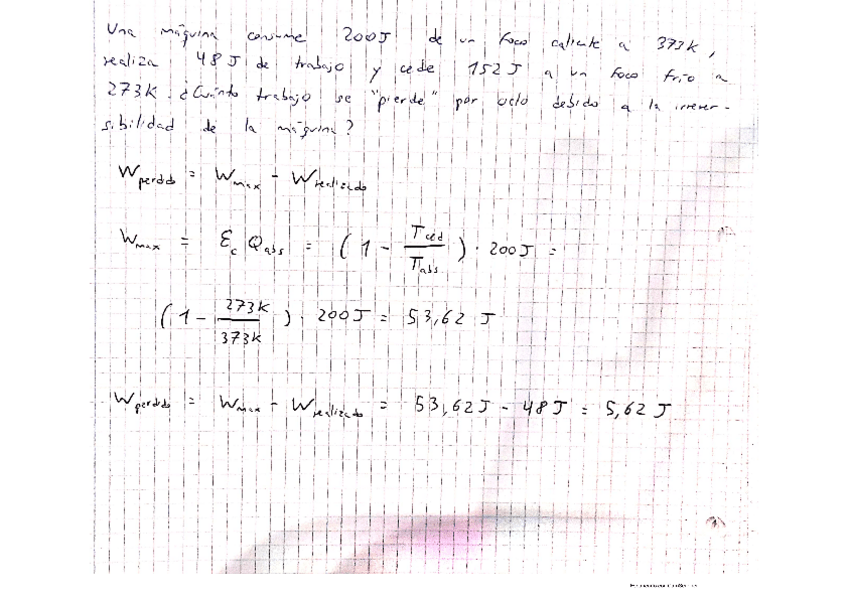 Una máquina consume 200J de un foco caliente a 373K,
realiza 48J de trabajo y cede 152J a un foco frío a
273K. ¿Cuánto trabajo se "pierde" por ciclo debido a la irrever-
sibilidad de la máquina?
Wperdido = Wmax - Wrealizado
Wmax = Ec Qabs = (1 - Tced/Tabs) · 200J =
(1 - 273K/373K) · 200J = 53,62 J
Wperdido = Wmax - Wrealizado = 53,62J - 48J = 5,62 J